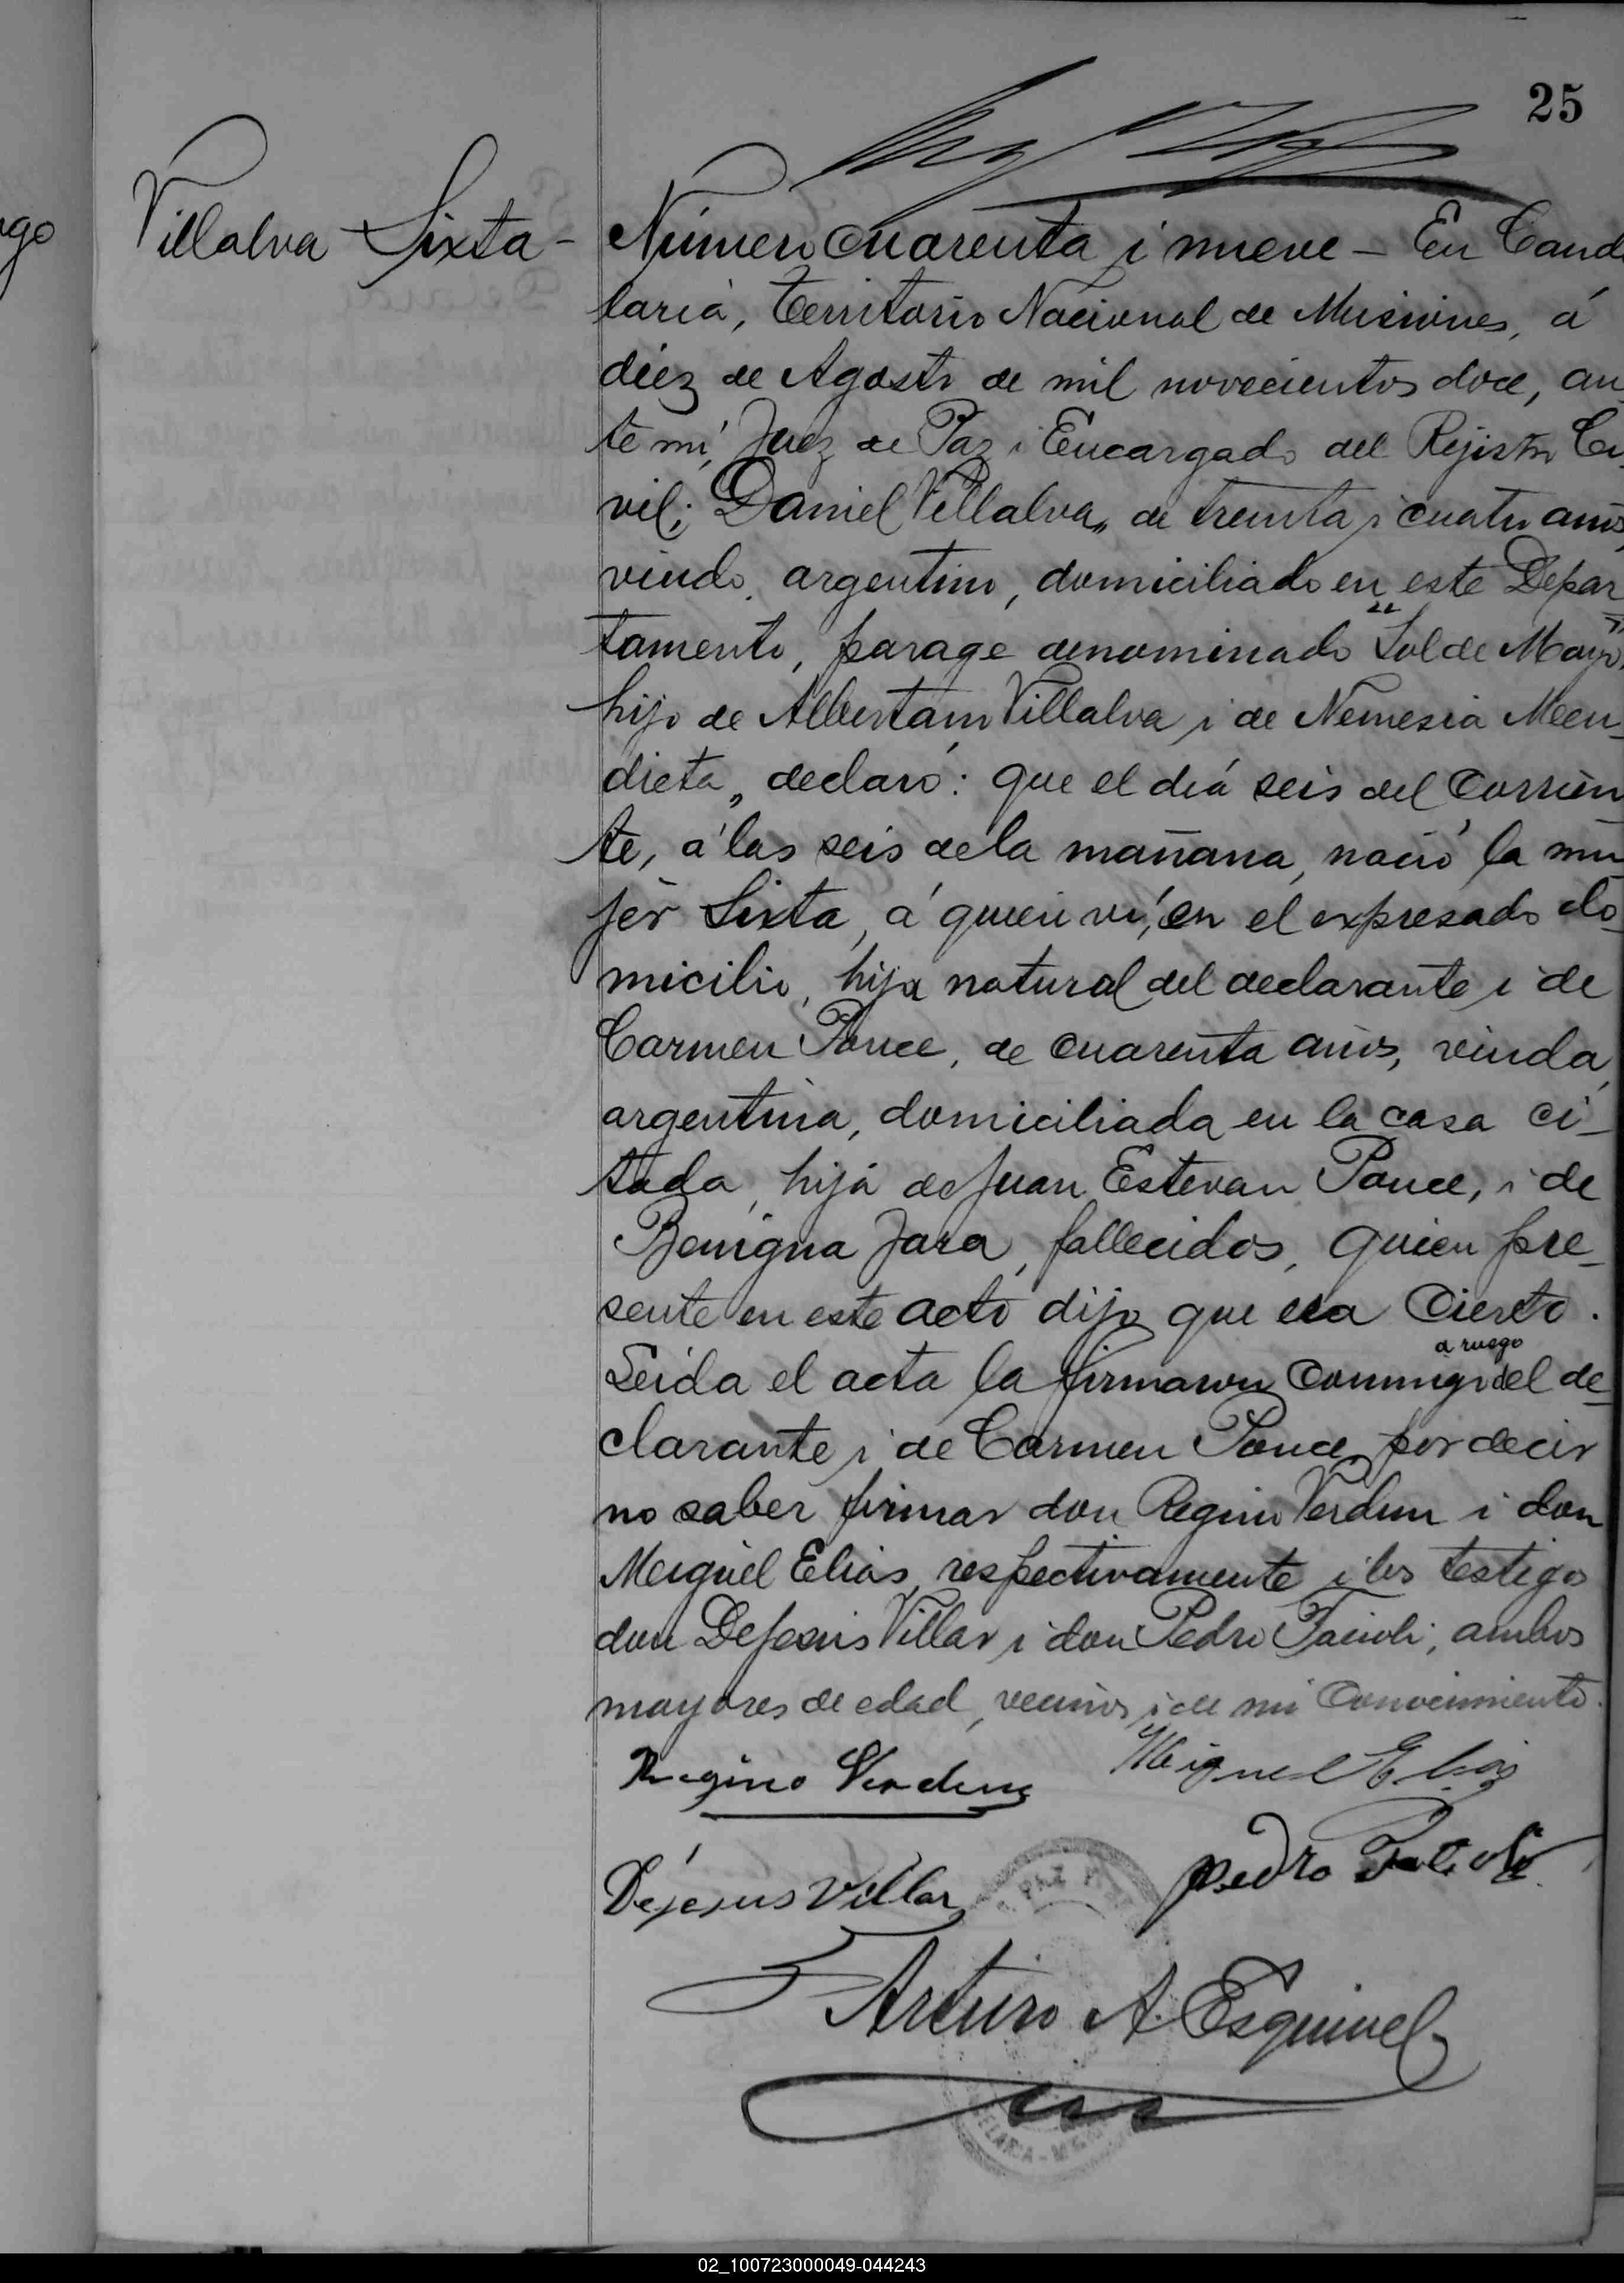 25
go
Villalva Sixta -
Número cuarenta i nueve - En Cande
laria, Territorio Nacional de Misiones, á
diez de Agosto de mil novecientos doce, an
te mí, Juez de Paz i Encargado del Rejistro Ci
vil; Daniel Villalva, de treinta i cuatro años,
viudo, argentino, domiciliado en este Depar
tamento, parage denominado "Sol de Mayo",
hijo de Albertano Villalva i de Nemesia Men
dieta, declaró: que el día seis del corrien
te, á las seis de la mañana, nació la mu
jer Sixta, á quien ví, en el expresado do
micilio, hija natural del declarante i de
Carmen Ponce, de cuarenta años, viuda,
argentina, domiciliada en la casa ci-
tada, hija de Juan Estevan Ponce, i de
Benigna Jara, fallecidos, quien pre-
sente en este acto dijo que era cierto.
a ruego
Leida el acta la firmaron conmigo del de
clarante i de Carmen Ponce, por decir
no saber firmar don Regino Verdun i don
Miguel Elias, respectivamente i los testigos
don Dejesus Villar i don Pedro Facioli; ambos
mayores de edad, vecinos i de mi conocimiento.
Regino Verdun
Miguel Elias
Dejesus Villar
Pedro
Arturo A. Esquivel
02_100723000049-044243